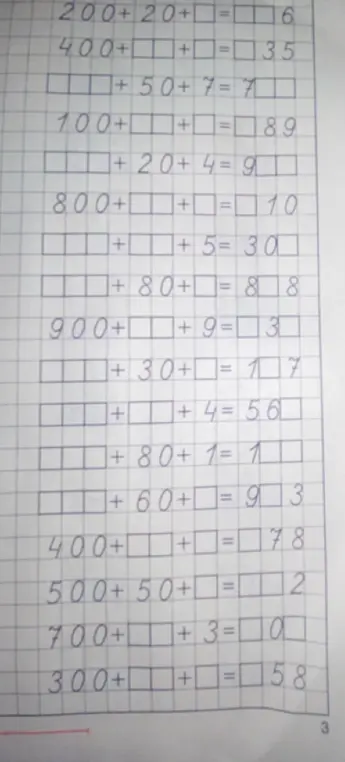 200+20+□=□□6
400+□□+□=□35
□□□+50+7=7□□
100+□□+□=□89
□□□+20+4=9□□
800+□□+□=□10
□□□+□□+5=30□
□□□+80+□=8□8
900+□□+9=□3□
□□□+30+□=1□7
□□□+□□+4=56□
□□□+80+1=1□□
□□□+60+□=9□3
400+□□+□=□78
500+50+□=□□2
700+□□+3=□0□
300+□□+□=□58
3